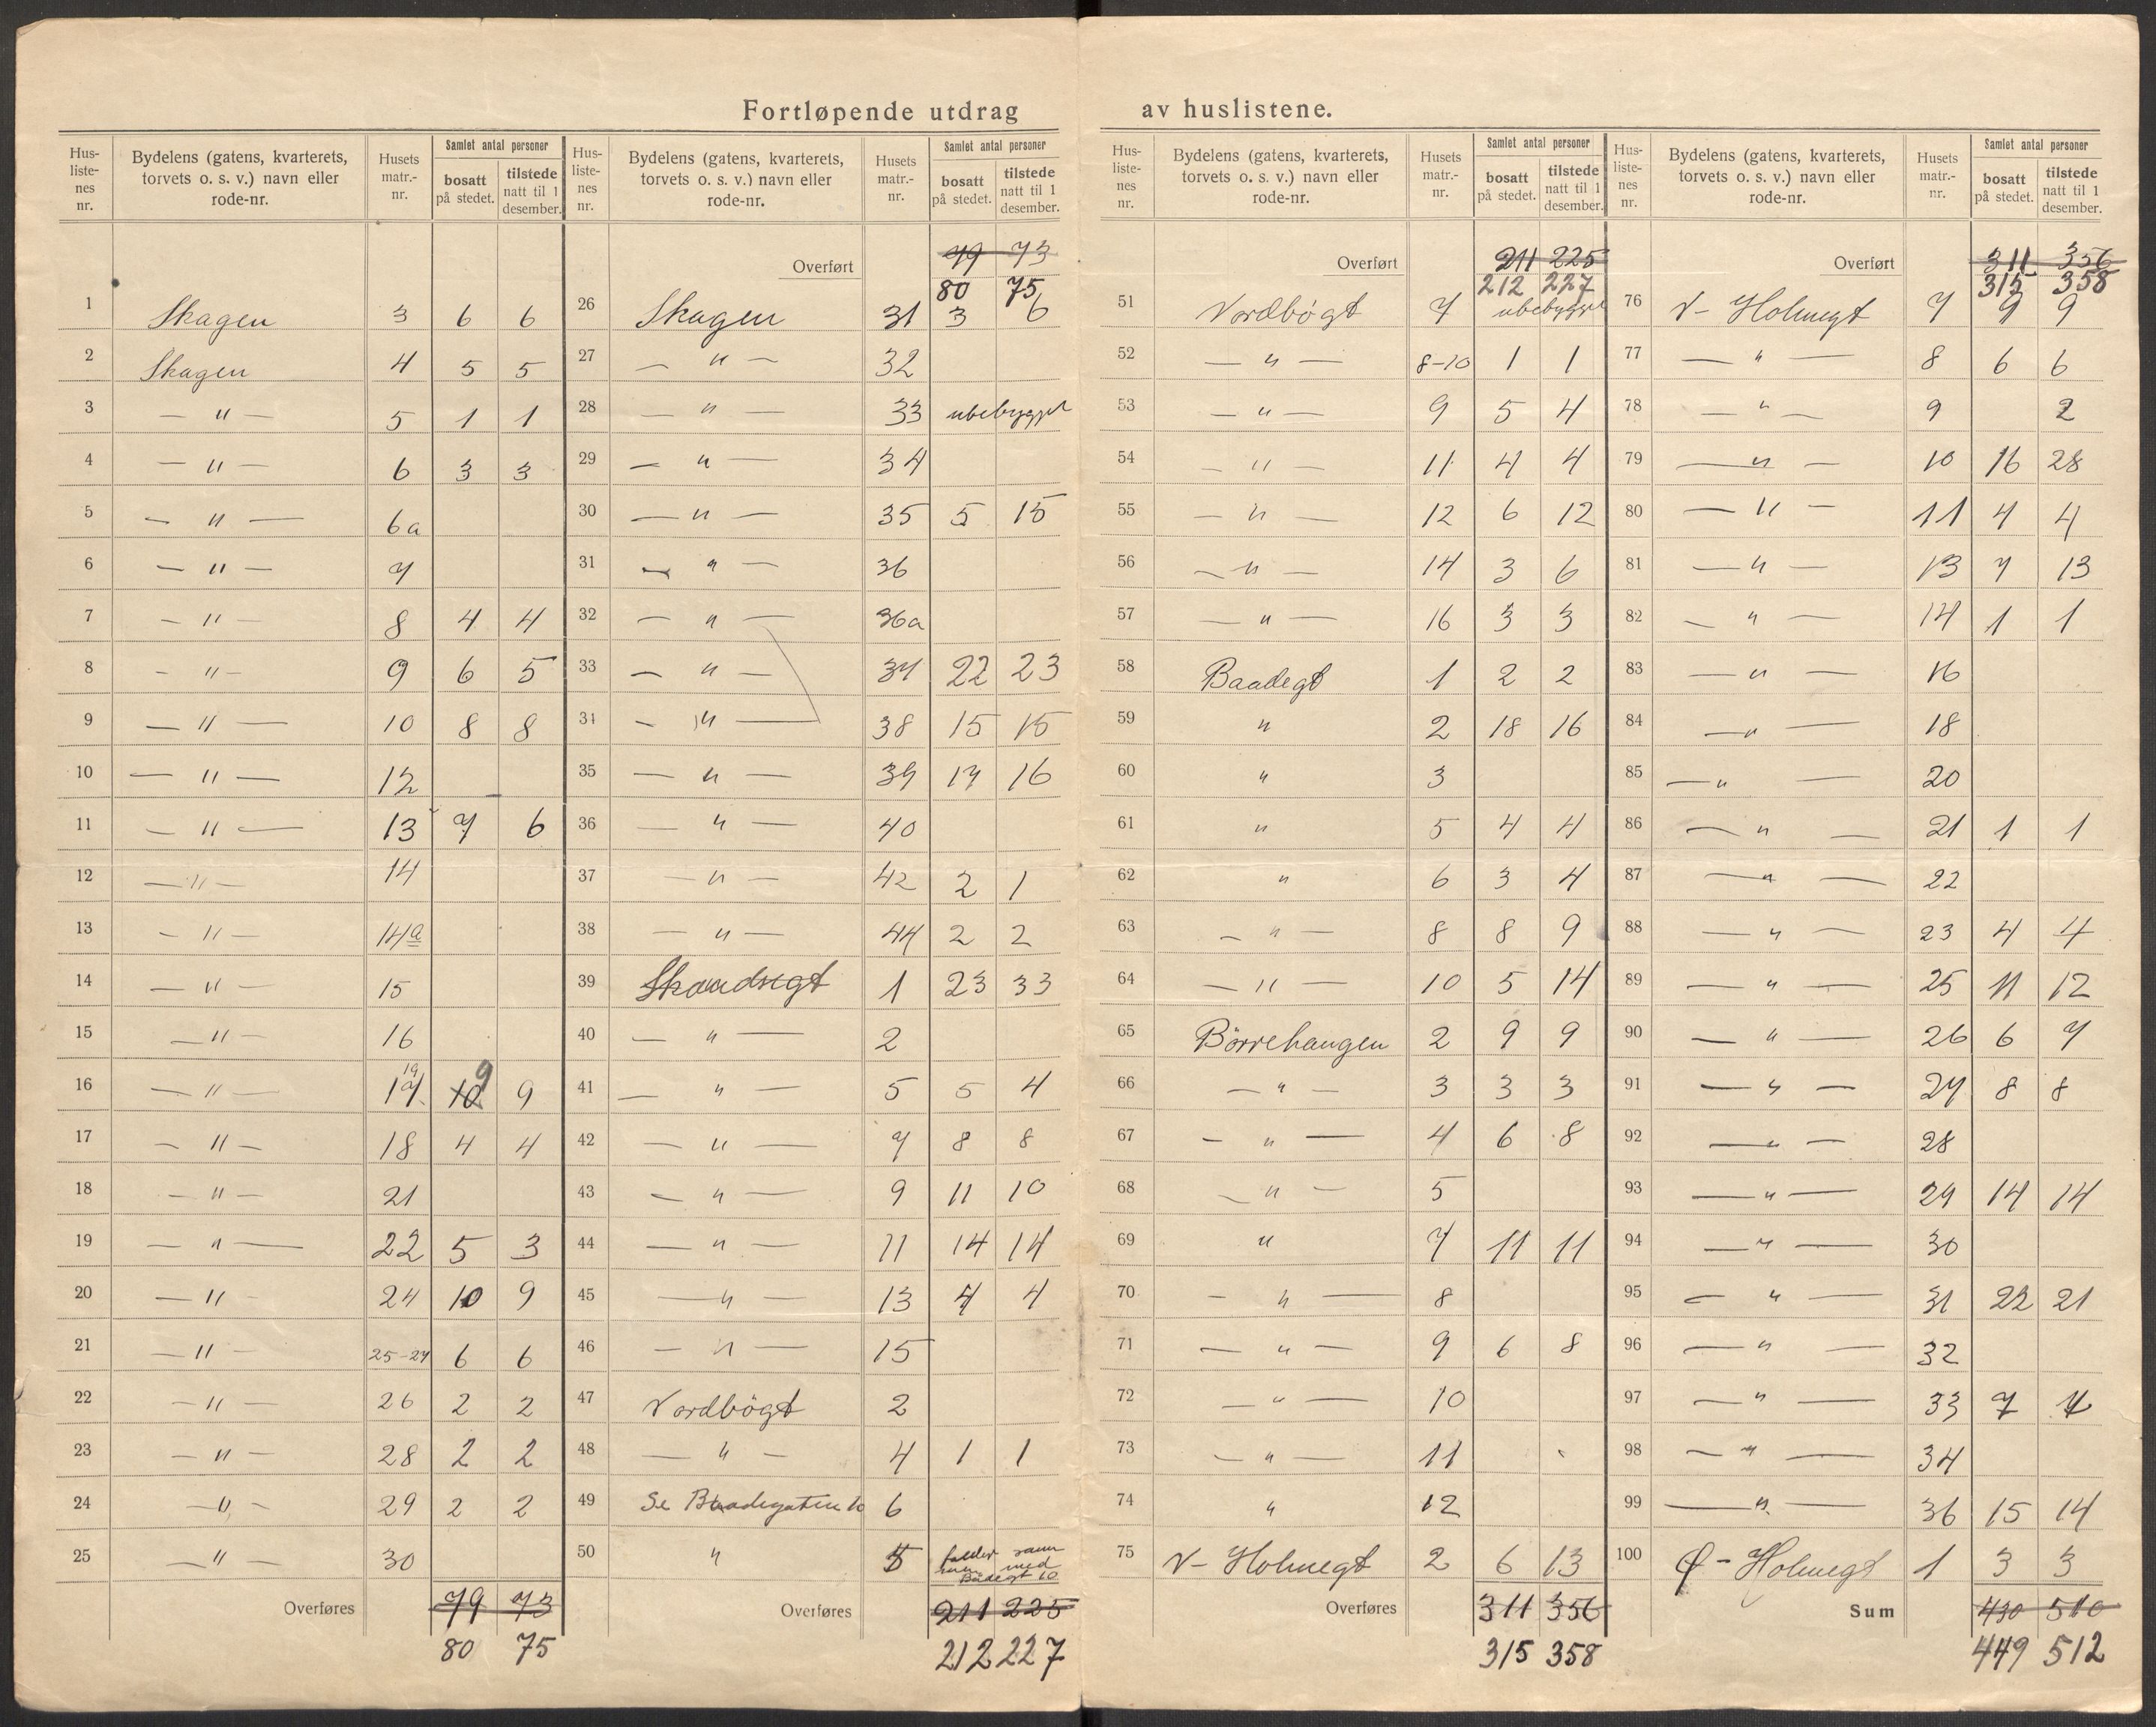 Fortløpende utdrag av huslistene.
Hus-listenes nr. Bydelens (gatens, kvarterets, torvets o. s. v.) navn eller rode-nr. Husets matr.-nr. Samlet antal personer bosatt på stedet. tilstede natt til 1 desember.
1 Skagen 3 6 6
2 Skagen 4 5 5
3 — " — 5 1 1
4 — " — 6 3 3
5 — " — 6a
6 — " — 7
7 — " — 8 4 4
8 — " — 9 6 5
9 — " — 10 8 8
10 — " — 12
11 — " — 13 7 6
12 — " — 14
13 — " — 14a
14 — " — 15
15 — " — 16
16 — " — 17 19 10 9 9
17 — " — 18 4 4
18 — " — 21
19 — " — 22 5 3
20 — " — 24 10 9
21 — " — 25-27 6 6
22 — " — 26 2 2
23 — " — 28 2 2
24 — " — 29 2 2
25 — " — 30
Overføres 79 73
80 75
Hus-listenes nr. Bydelens (gatens, kvarterets, torvets o. s. v.) navn eller rode-nr. Husets matr.-nr. Samlet antal personer bosatt på stedet. tilstede natt til 1 desember.
Overført 79 73
80 75
26 Skagen 31 3 6
27 — " — 32
28 — " — 33 ubebygget
29 — " — 34
30 — " — 35 5 15
31 — " — 36
32 — " — 36a
33 — " — 37 22 23
34 — " — 38 15 15
35 — " — 39 17 16
36 — " — 40
37 — " — 42 2 1
38 — " — 44 2 2
39 1 23 33
40 — " — 2
41 — " — 5 5 4
42 — " — 7 8 8
43 — " — 9 11 10
44 — " — 11 14 14
45 — " — 13 4 4
46 — " — 15
47 Nordbøgt 2
48 — " — 4 1 1
49 Se Baadegaten 10 6
50 " 5 falder sammen med Baadegt 10
Overføres 211 225
212 227
Hus-listenes nr. Bydelens (gatens, kvarterets, torvets o. s. v.) navn eller rode-nr. Husets matr.-nr. Samlet antal personer bosatt på stedet. tilstede natt til 1 desember.
Overført 211 225
212 227
51 Nordbøgt 7 ubebygget
52 — " — 8-10 1 1
53 — " — 9 5 4
54 — " — 11 4 4
55 — " — 12 6 12
56 — " — 14 3 6
57 — " — 16 3 3
58 Baadegt 1 2 2
59 " 2 18 16
60 " 3
61 " 5 4 4
62 " 6 3 4
63 — " — 8 8 9
64 — " — 10 5 14
65 Börrehaugen 2 9 9
66 — " — 3 3 3
67 — " — 4 6 8
68 — " — 5
69 " 7 11 11
70 — " — 8
71 — " — 9 6 8
72 — " — 10
73 — " — 11
74 " 12
75 V- Holmegt 2 6 13
Overføres 311 356
315 358
Hus-listenes nr. Bydelens (gatens, kvarterets, torvets o. s. v.) navn eller rode-nr. Husets matr.-nr. Samlet antal personer bosatt på stedet. tilstede natt til 1 desember.
Overført 311 356
315 358
76 V- Holmegt 7 9 9
77 — " — 8 6 6
78 — " — 9 2
79 — " — 10 16 28
80 — " — 11 4 4
81 — " — 13 7 13
82 — " — 14 1 1
83 — " — 16
84 — " — 18
85 — " — 20
86 — " — 21 1 1
87 — " — 22
88 — " — 23 4 4
89 — " — 25 11 12
90 — " — 26 6 7
91 — " — 27 8 8
92 — " — 28
93 — " — 29 14 14
94 — " — 30
95 — " — 31 22 21
96 — " — 32
97 — " — 33 7
98 — " — 34
99 — " — 36 15 14
100 Ø - Holmegt 1 3 3
Sum 430 510
449 512